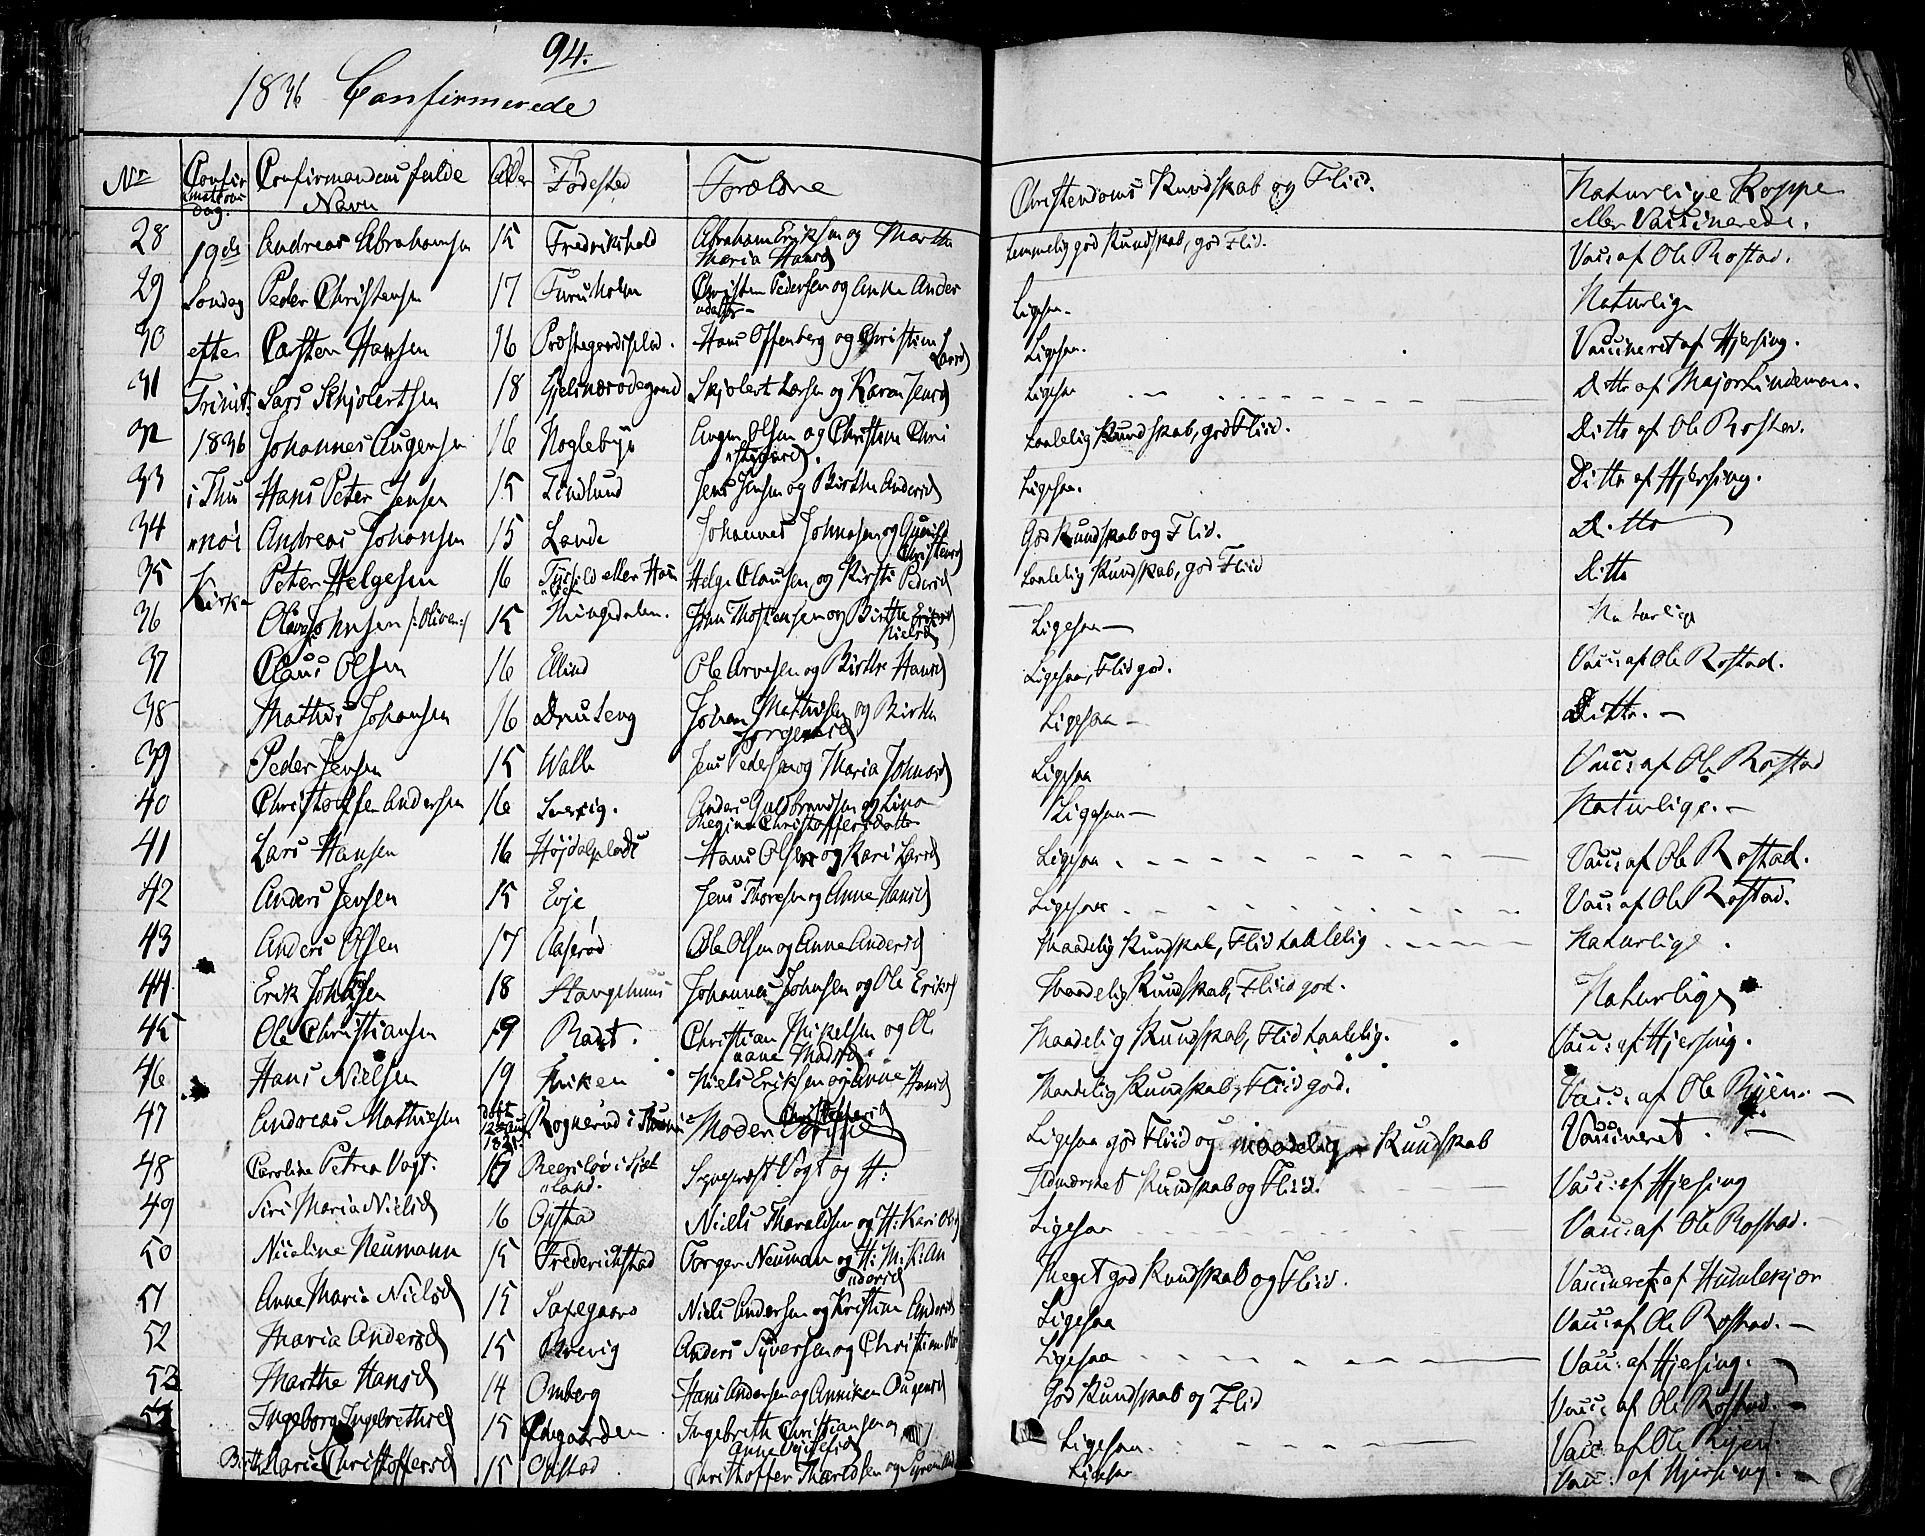 94.
1836 Confirmerede
Nr Confirmations Dag. Confirmandens fulde Navn Alder Födested Forældre Christendoms Kundskab og Fliid. Naturlige Koppe eller Vaccinerede.
28 19de Andreas Abrahamsen 15 Fredrikshald Abraham Eriksen og Marthe Maria Hansd temmelig god Kundskab, god Flid. Vacc: af Ole Rostad.
29 Søndag Peder Christensen 17 Furuholm Christen Pedersen og Anne Andersdatter Ligesaa. Naturlige
30 efter Carsten Hansen 16 Hans Offenberg og Christine Larsd Ligesaa. Vaccineret af Hjersing.
31 Trinit: Lars Schjolertsen 18 Skjolert Larsen og Karen Jensd Ligesaa Ditto af Major Lindeman.
32 1836 Johannes Augensen 16 Noglebye Augen Olsen og Christine Chri Taalelig Kundskab, god Fliid. Ditto af Ole
33 i Thu Hans Peter Jensen 15 Lindlund Jens Jensen og Birthe Andersd Ligesaa. Ditto af Hjersing.
34 nöi Andreas Johansen 15 Lande Johannes Johnsen og Christensd God Kundskab og Flid. Ditto
35 Kirke Peter Helgesen 16 eller Helge Clausen og Kirsti Pedersd Taalelig Kundskab, god Fliid Ditto
36 Johnsen /:Oliver:/ 15 Ningsdalen. og Birthe Nielsd Ligesaa Naturlige
37 Claus Olsen 16 Ellind Ole Arvesen og Birthe Hansd Ligesaa, Flid god. Vacc: af Ole Rostad.
38 Mathis Johansen 16 Johan Mathisen og Birthe Jørgensd Ligesaa Ditto.
39 Peder Jensen 15 Walle Jens Pedersen og Maria Johnsd Ligesaa Vacc: af Ole Rostad
40 Christoffer Andersen 16 Anders Guldbrandsen og Lina Regine Christoffersdatter Ligesaa Naturlige.
41 Lars Hansen 16 Højdelplads Hans Olsen og Kari Larsd Ligesaa. Vacc: af Ole Rostad.
42 Anders Jensen 15 Evje Jens Thoresen og Anne Hansd Ligesaa Vacc: af Ole Rostad.
43 Anders Olsen 17 Aaserød Ole Olsen og Anne Andersd Maadelig Kundskab, Flid taalelig Naturlige.
44 Erik Johnsen 18 Stangehuus Johannes Johnsen og Ole Eriksd Maadelig Kundskab, Fliid god. Naturlige
45 Ole Christiansen 19 Christian Mikelsen og Ole aane Madsd. Maadelig Kundskab, Flid taalelig. Vacc: af Hjersing.
46 Hans Nielsen 19 Niels Eriksen og Anne Hansd Maadelig Kundskab, Fliid god. Vacc: af Ole Ryen.
47 Andreas Mathiesen 1821 Rognerød i Moder Ligesaa god Fliid og maadelig Kundskab Vaccineret.
48 Caroline Petrea Vogt. 17 i Sjel land. Sogneprest Vogt og H: Udmærket Kundskab og Fliid. Vacc: af Hjersing
49 Siri Maria Nielsd 16 Opstad Niels Tharaldsen og H: Kari Olsd Ligesaa Vacc: af Ole Rostad.
50 Nicoline Neumann 15 Frederichstad Jørgen Neuman og H: M: K: An dersd Meget god Kundskab og Fliid. Vaccineret af Humlekjær
51 Anne Maria Nielsd 15 Saxegaard Niels Andersen og Kristine Andersd Ligesaa Vacc: af Ole Rostad.
52 Maria Andersd 15 Brevig Anders Syversen og Christine Olsd Ligesaa Vacc: af Hjersing.
53 Marthe Hansd 14 Omberg Hans Andersen og Anniken Augensd God Kundskab og Flid Vacc: af Ole Rostad.
54 Ingeborg Ingebrethsd 15 Ingebreth Christiansen og Anne Ligesaa. Vacc: af Ole Ryen.
Birthe Marie Christoffersd 15 Opstad Christoffer Tharldsen og Ligesaa Vacc: af Hjersing.